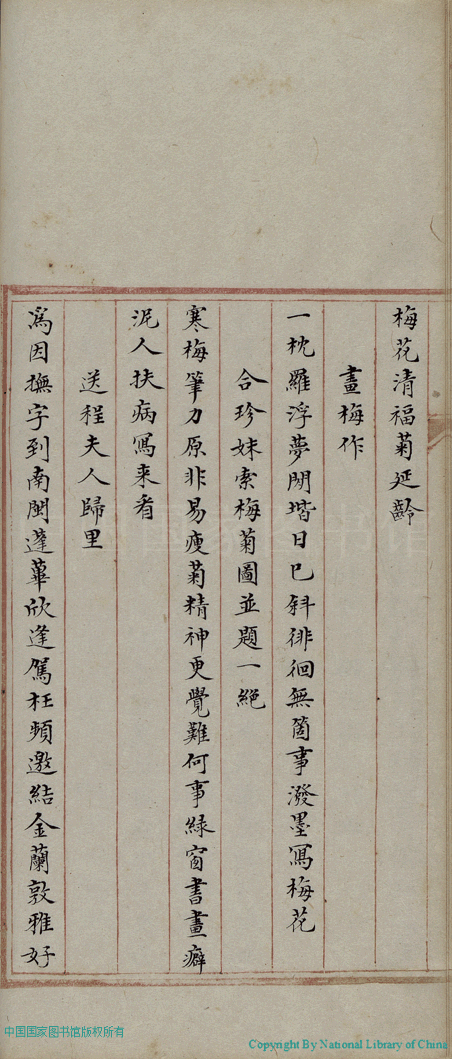 梅花清福菊延齡
畫梅作
一枕羅浮夢閒堦日已斜徘徊無箇事潑墨寫梅花
合珍妹索梅菊圖並題一絕
寒梅筆力原非易瘦菊精神更覺難何事綠窗書畫癖
泥人扶病寫来看
送程夫人歸里
為因撫字到南閩蓬蓽欣逢駕枉頻邀結金蘭敦雅好
中国国家图书馆版权所有
Copyright By National Library of China